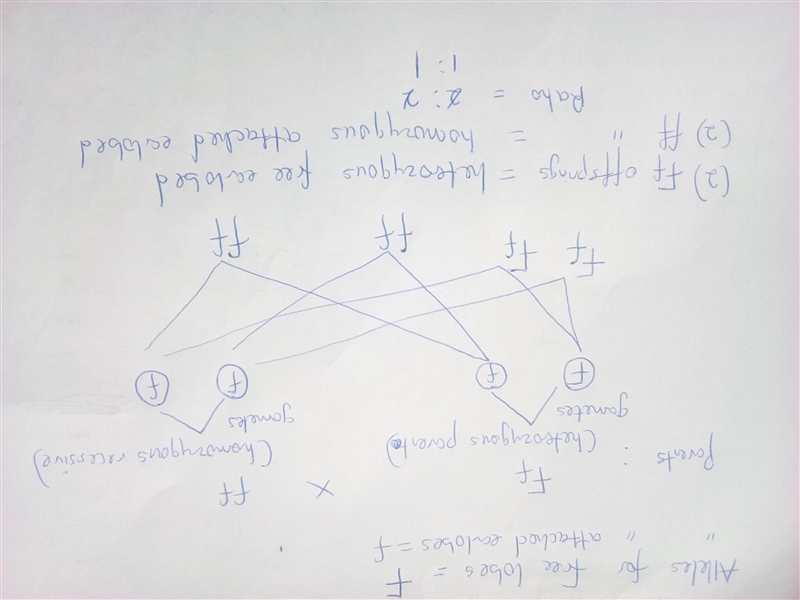 Alleles for free lobes = F
" " attached earlobes = f
Parents : Ff × ff
(heterozygous parents) (homozygous recessive)
gametes gametes
F f f f
Ff Ff ff ff
(2) Ff offsprings = heterozygous free earlobed
(2) ff " = homozygous attached earlobed
Ratio = 2:2
1:1